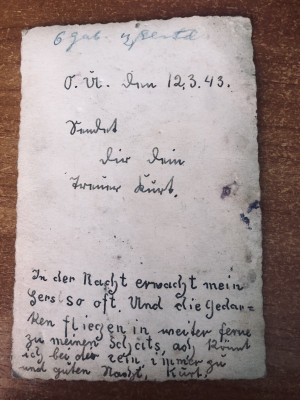 6 gab.
O. U. den 12.3.43.
Sendet
dir dein
treuer Kurt.
In der Nacht erwacht mein
Hers so oft. Und die Gedan-
ken fliegen in weiter ferne
zu meinen Schats, ach könnt
ich bei dir sein immer zu
und guten Nacht, Kurt.